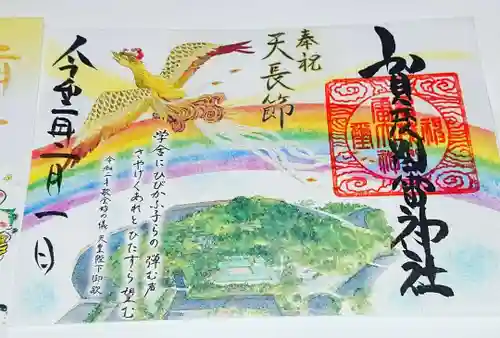 賀茂別雷神社
奉祝
天長節
学舎にひびかふ子らの 弾む声
さやけくあれとひたすら望む
令和二年歌会始の儀 天皇陛下御歌
年二月一日